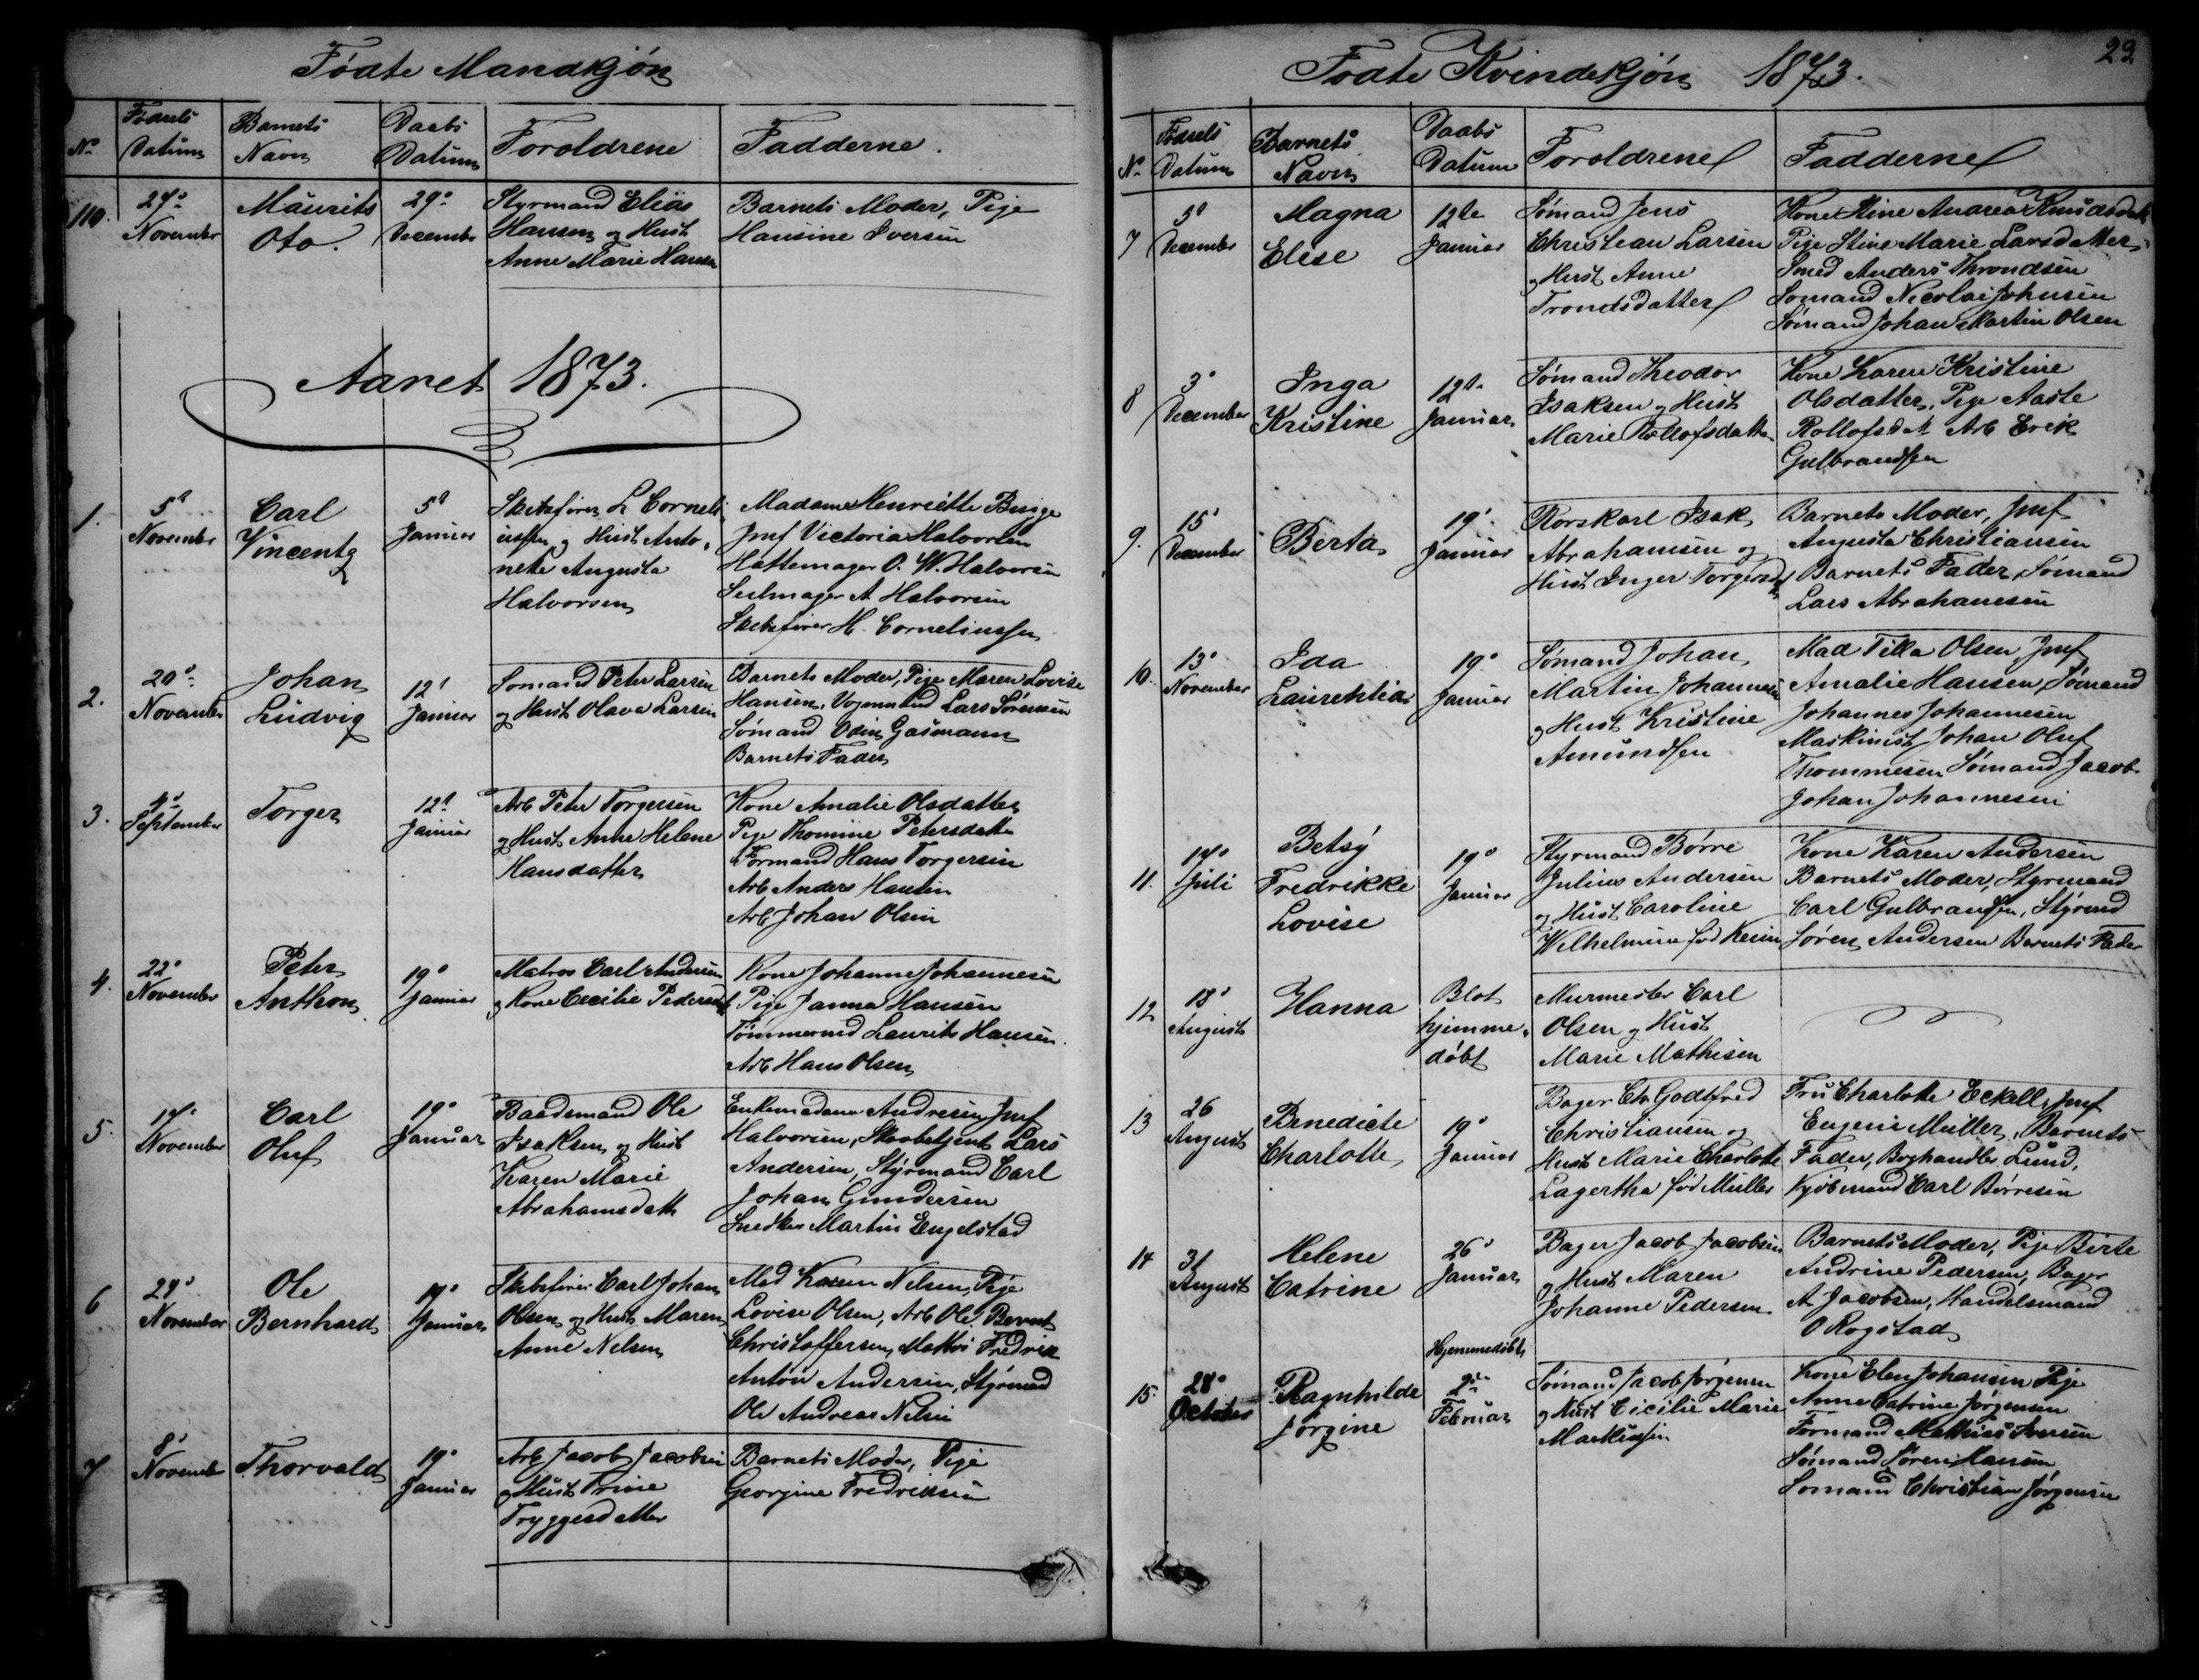 Fødte Mandkjøn
No
Fødsels Datum
Barnets Navn
Daabs Datum
Foroldrene
Fadderne.
110.
27de November
Maurits Oto.
29de December
Styrmand Elias
Hansen og Hust
Anne Marie Hansen
Barnets Moder, Pige
Hansine Iversen
Aaret 1873.
1.
5te November
Carl Vincentz
5te Januar
Skibsfører L Corneli
ussen og Hust Anto
nete Augusta
Halvorsen
Madame Henriette Bugge
Jmf Victoria Halvorsen
Hattemager O. W. Halvorsen
Seilmager A Halvorsen
Skibsfører H. Corneliussen
2.
20de November
Johan Ludvig
12te Januar
Sømand Peter Larsen
og Hust Olava Larsen
Barnets Moder, Pige Maren Lovise
Hansen, Vognmand Lars Sørensen
Sømand Odin Gasmann
Barnets Fader
3.
September
Torger
12te Januar
Arb Peter Torgersen
og Hust Anne Helene
Hansdatter
Kone Amalie Olsdatter
Pige Thomine Petersdatter
Formand Hans Torgersen
Arb Anders Hansen
Arb Johan Olsen
4.
22de November
Peter Anthon
19de Januar
Matros Carl Andersen
og Kone Cecilie Pedersen
Kone Johanne Johannesen
Pige Janna Hansen
Tømmermd Laurits Hansen
Arb Hans Olsen
5.
17de November
Carl Oluf
19de Januar
Baadsmand Ole
Isaksen og Hust
Karen Marie
Abrahamsdatt
Enkemadam Andresen Jmf
Halvorsen, Skovbetjent Lars
Andersen, Styrmand Carl
Johan Gundersen
Snedker Martin Engelstad
6
29de November
Ole Bernhard
19de Januar
Skibsfører Carl Johan
Olsen og Hust Maren
Anne Nelsen
Mad Karen Nelsen, Pige
Lovise Olsen, Arb Ole Bernt
Christoffersen, Matros Fredrik
Anton Andersen, Styrmand
Ole Andreas Nelsen
7
8de November
Thorvald
19de Januar
Arb Jacob Jacobsen
og Hust Trine
Tryggesdatter
Barnets Moder, Pige
Georgine Fredriksen
Fødte Kvindekjøn 1873.
29
No
Fødsels Datum
Barnets Navn
Daabs Datum
Foroldrene
Fadderne
7
5te December
Magna Elise
12te Januar
Sømand Jens
Christian Larsen
og Hust Anne
Trondsdatter
Kone Stine Andrea Knudsdatt
Pige Stine Marie Larsdatter
Smed Anders Throndsen
Sømand Nicolai Johnsen
Sømand Johan Martin Olsen
8
3de December
Inga Kristine
12te Januar
Sømand Theodor
Isaksen og Hust
Marie Rollofsdatter
Kone Karen Kristine
Olsdatter, Pige Aaste
Rollofsdt Arb Erik
Gulbrandsen
9.
15de December
Berta
19de Januar
Rorskarl Isak
Abrahamsen og
Hust Inger Torgersdt
Barnets Moder, Jmf
Augusta Christiansen
Barnets Fader, Sømand
Lars Abrahamsen
10.
13de November
Ida Laurentia
19de Januar
Sømand Johan
Martin Johannesen
og Hust Kristine
Amundsen
Mad Tilla Olsen, Jmf
Amalie Hansen, Sømand
Johannes Johannesen
Maskinist Johan Oluf
Thommesen Sømand Jacob
Johan Johannesen
11.
17de Juli
Betsy Fredrikke Lovise
19de Januar
Styrmand Børre
Julius Andersen
og Hust Caroline
Wilhelmine fød
Kone Karen Andersen
Barnets Moder, Styrmand
Carl Gulbrandsen, Styrmd
Søren Andersen Barnets Fader
12
18de August
Hanna
Blot hjemme døbt
Murmester Carl
Olsen og Hust
Marie Mathisen
13
26 August
Benedicte Charlotte
19de Januar
Bager Chr Godtfred
Christiansen og
Hust Marie Charlotte
Lagertha fød Müller
Fru Charlotte Eckell, Jmf
Eugenie Müller, Barnets
Fader, Boghandler Lund,
Kjøbmand Carl Børresen
14
31 August
Helene Catrine
26de Januar
Bager Jacob Jacobsen
og Hust Maren
Johanne Pedersen
Barnets Moder, Pige Birte
Andrine Pedersen, Bager
A Jacobsen, Handelsmand
O Rogstad
15.
28de October
Ragnhilde Jørgine
Hjemmedøbt
2den Februar
Sømand Jacob Jørgensen
og Hust Cicilie Marie
Markussen
Kone Elen Johansen Pige
Anne Catrine Jørgensen
Formand Mathias Iversen
Sømand Søren Hansen
Sømand Christian Jørgensen